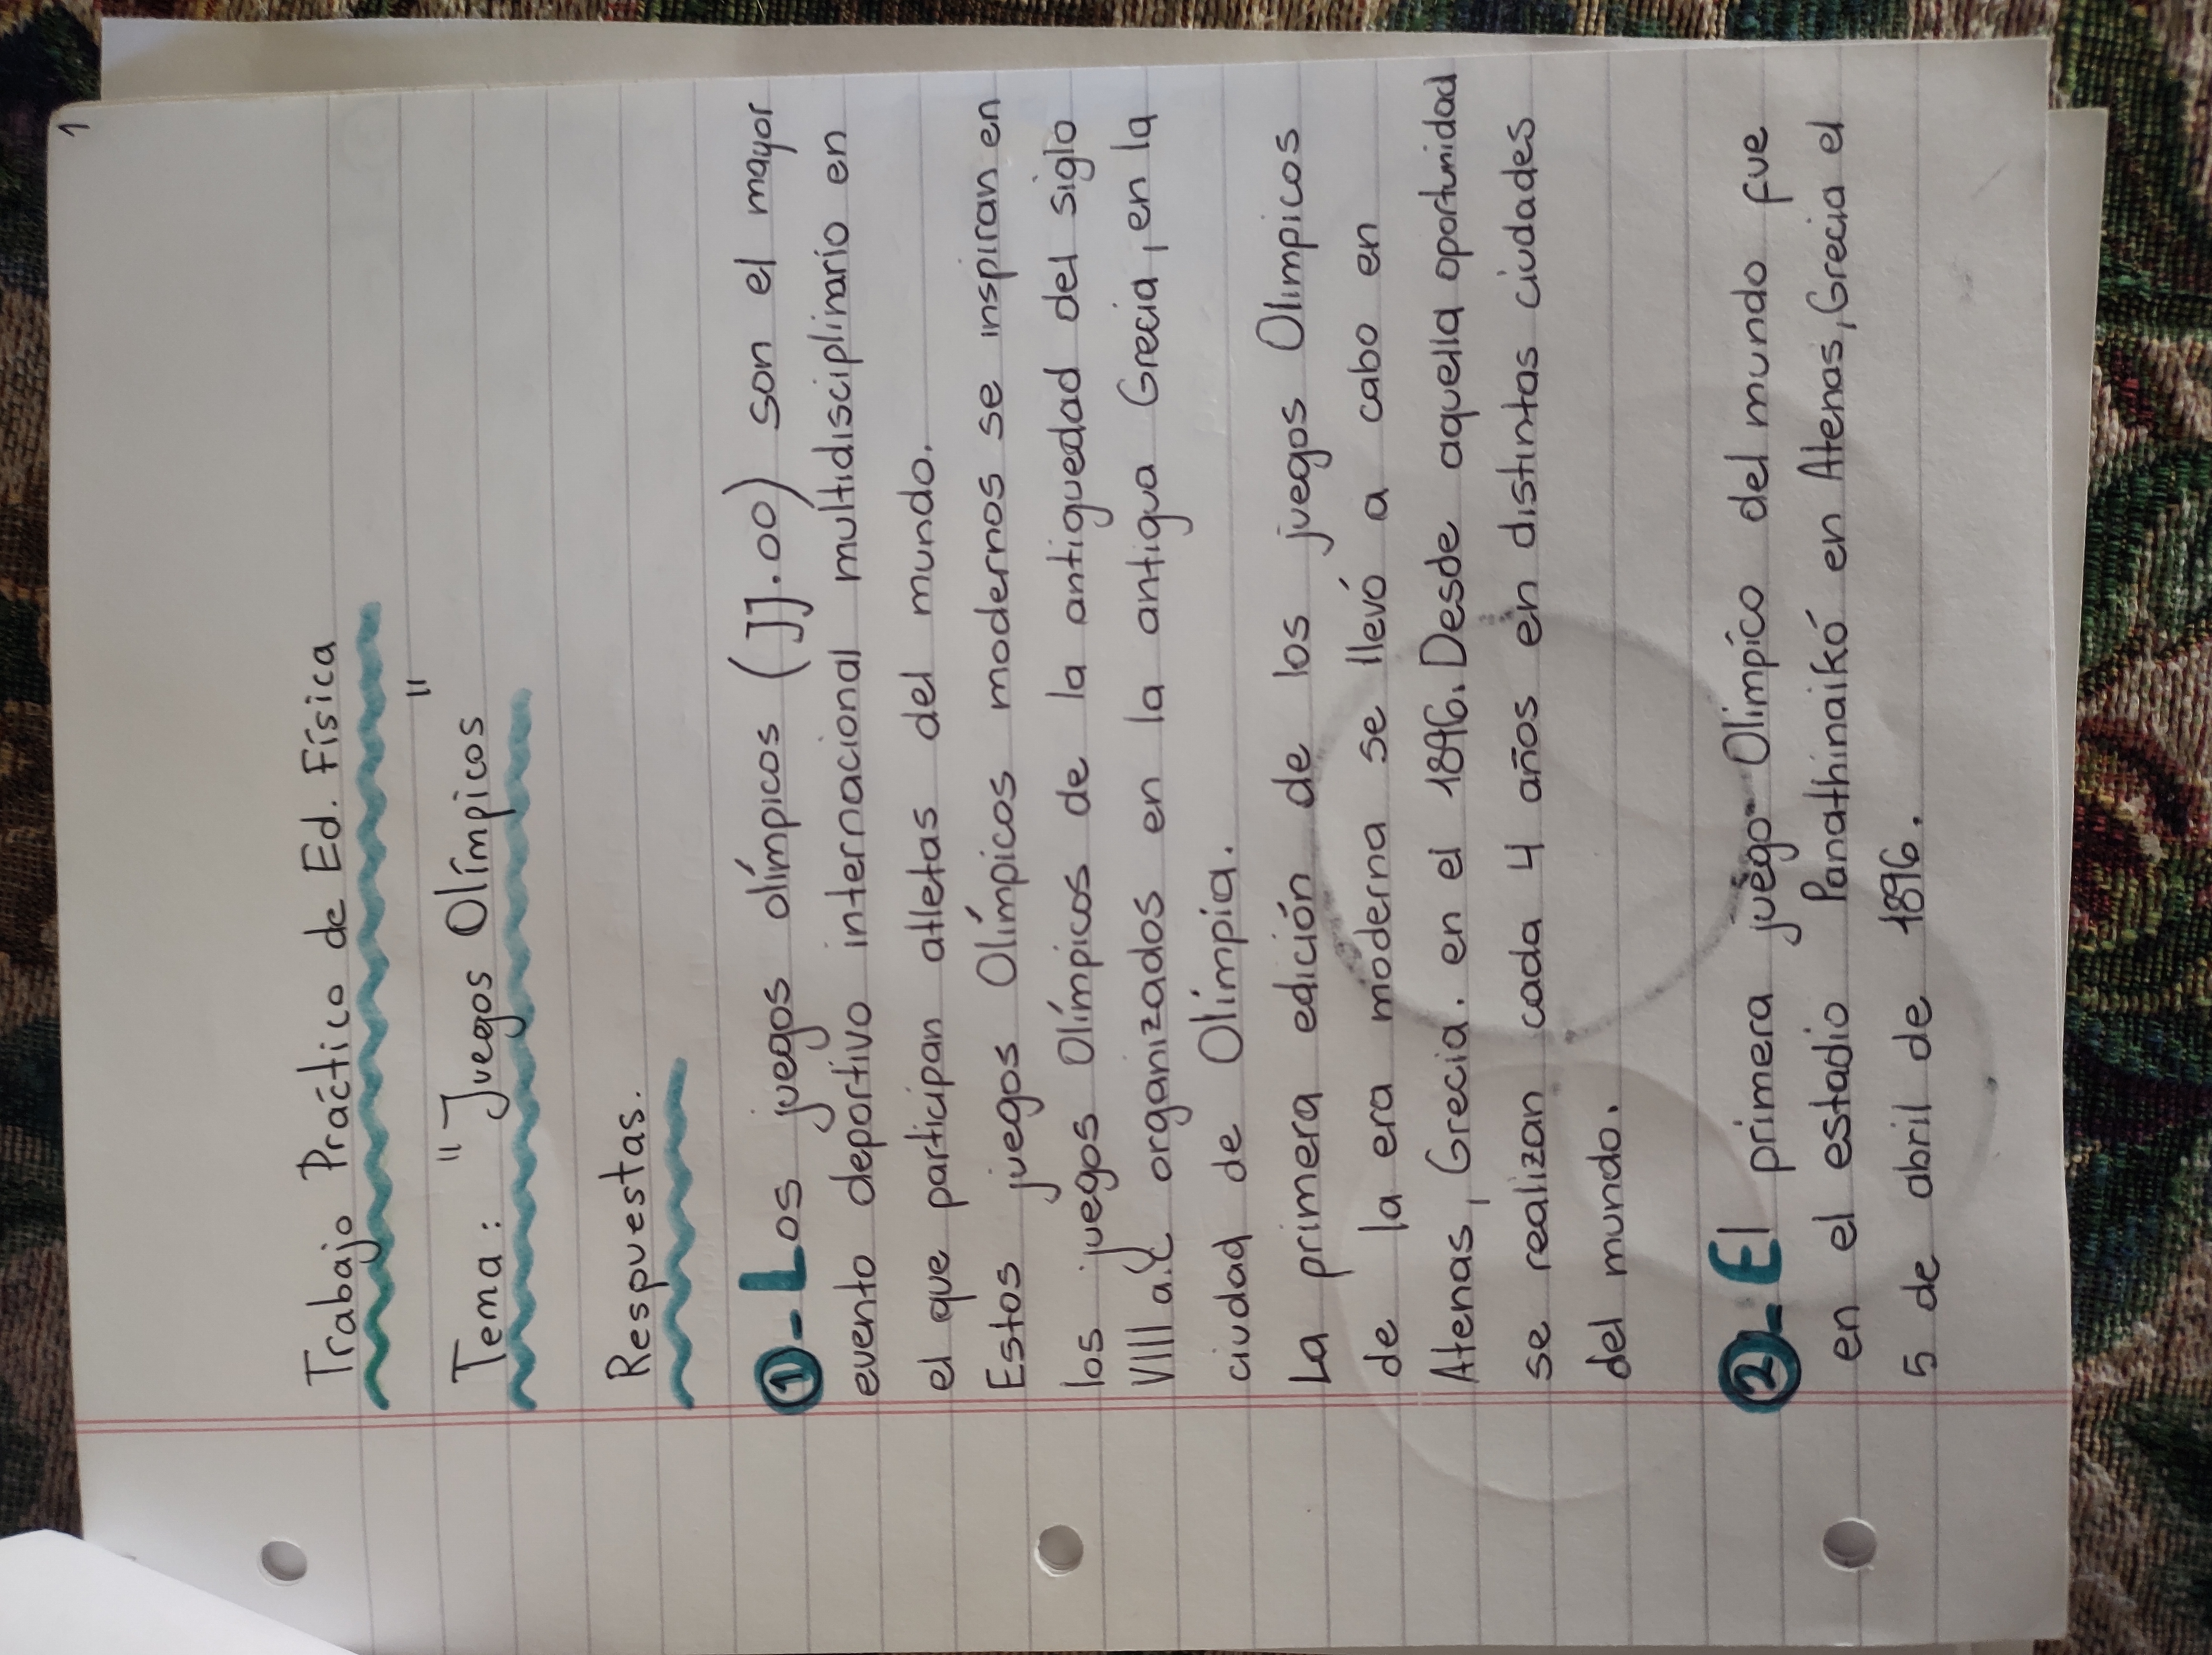 1
Trabajo Práctico de Ed. Física
Tema: "Juegos Olímpicos"
Respuestas.
①-Los juegos olímpicos (JJ.OO) son el mayor
evento deportivo internacional multidisciplinario en
el que participan atletas del mundo.
Estos juegos Olímpicos modernos se inspiran en
los juegos Olímpicos de la antiguedad del siglo
VIII a.C organizados en la antigua Grecia, en la
ciudad de Olímpia.
La primera edición de los juegos Olimpicos
de la era moderna se llevó a cabo en
Atenas, Grecia. en el 1896. Desde aquella oportunidad
se realizan cada 4 años en distintas ciudades
del mundo.
②-El primera juego Olimpico del mundo fue
en el estadio Panathinaikó en Atenas, Grecia el
5 de abril de 1896.